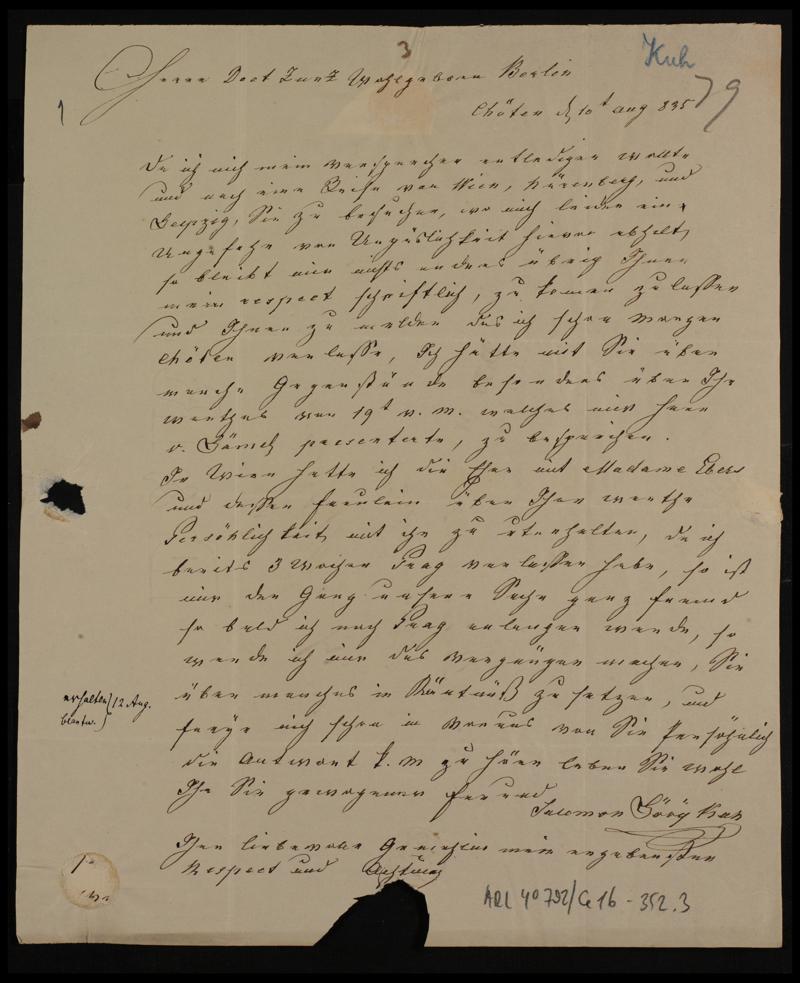 3
Kuh
79
1
Herrn Doct Zunz Wohlgeboren Berlin
Chöten d 10t aug 835
Da ich mich mein versprechen entledigen wollte
und nach eine Reise von Wien, Nürenberg, und
Leipzig, Sie zu besuchen, wo mich leider eine
Ungefehr von Unpäslichkeit hievon abhalt,
so bleibt mir nichts anders übrig Ihnen
mein respect schriftlich, zu komen zu lassen
und Ihnen zu melden das ich schon morgen
Chöten verlasse, Ich hätte mit Sie über
manche Gegenstände besonders über Ihr
werthes vom 19t v. m. welches mir Herr
v. presenterte, zu besprechen.
In Wien hatte ich die Ehre mit Madame Ebers
und dessen freulein über Ihre werthe
Persöhlichkeit mit ihr zu uterhalten, da ich
bereits 3 Wochen Prag verlassen habe, so ist
mir der Gang unsere Sache ganz fremd
so bald ich nach Prag anlangen werde, so
werde ich mir das vergnügen machen, Sie
über manches in Käntnüß zu setzen, und
freye mich schon in voraus von Sie Persöhnlich
die Antwort k. m zu hören leben Sie wohl
Ihr Sie gewogener freund
Salomon Kuh
Ihrer liebevolle Gemahlin mein ergebensten
Respect und Achtung
erhalten 12 Aug.
beantw.
ARC 4° 792/G16-352.3